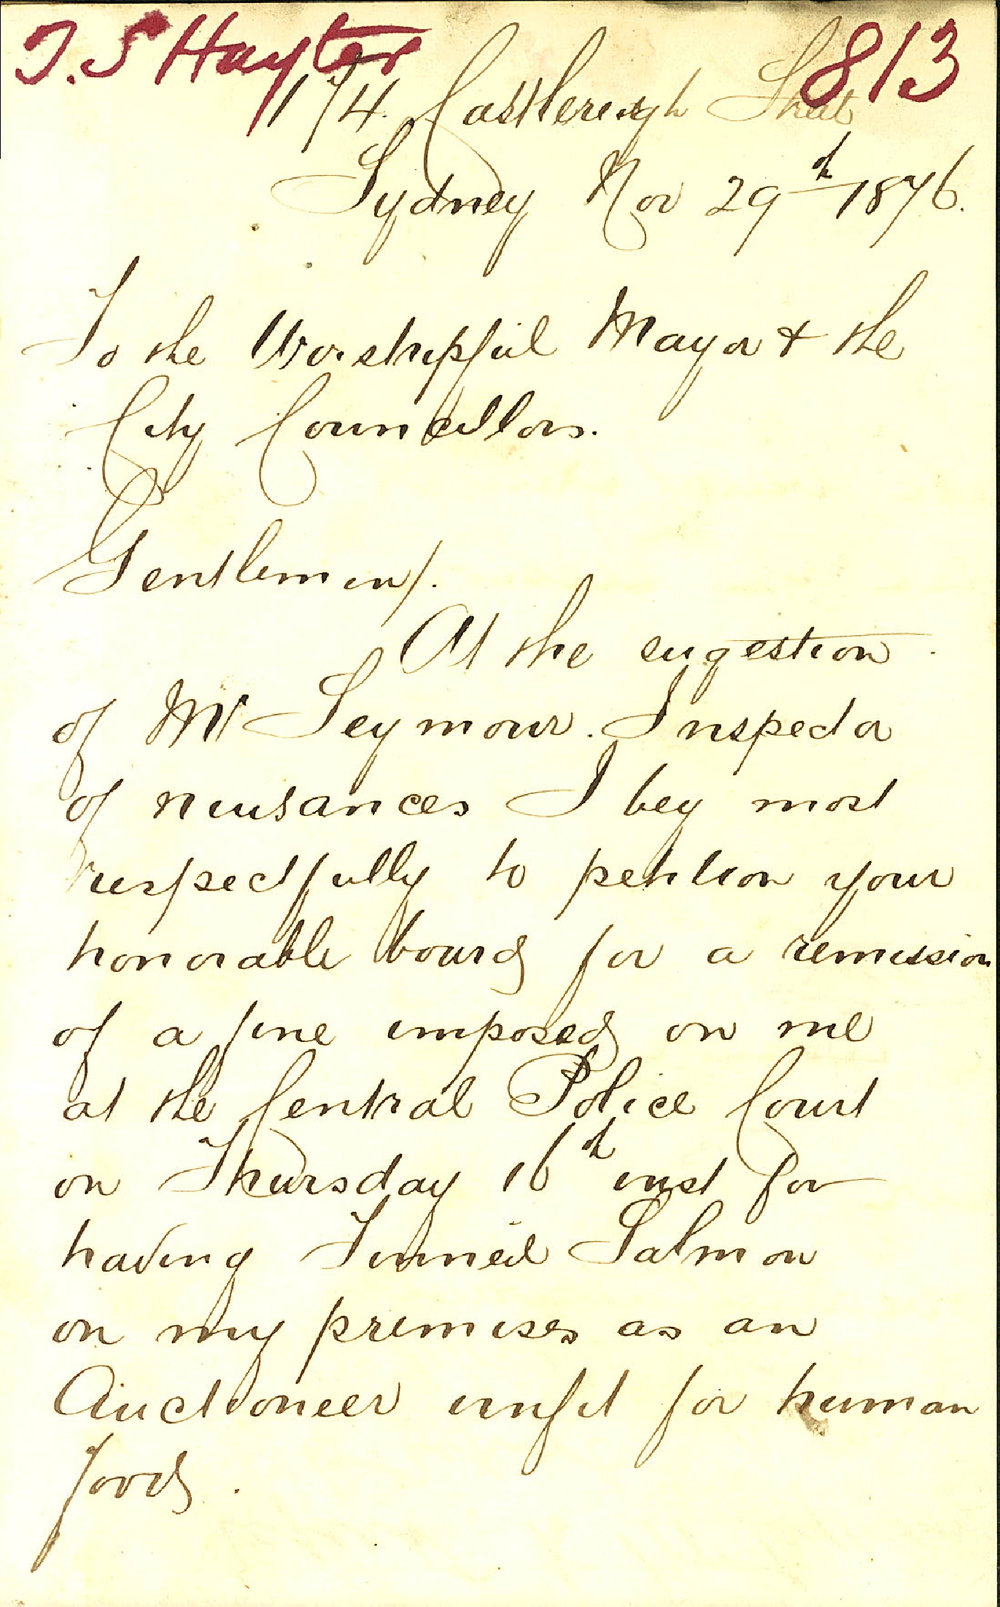 T. S Hayter 813
174. Castlereagh Street
Sydney Nov 29th 1876.
To the Worshipful Mayor & the
City Councillors.
Gentlemen/.
At the sugestion
of Mr Seymour. Inspector
of nuisances I beg most
respectfully to petition your
honorable board for a remission
of a fine imposed on me
at the Central Police Court
on Thursday 16th inst for
having Tinned Salmon
on my premises as an
Auctioneer unfit for human
food.